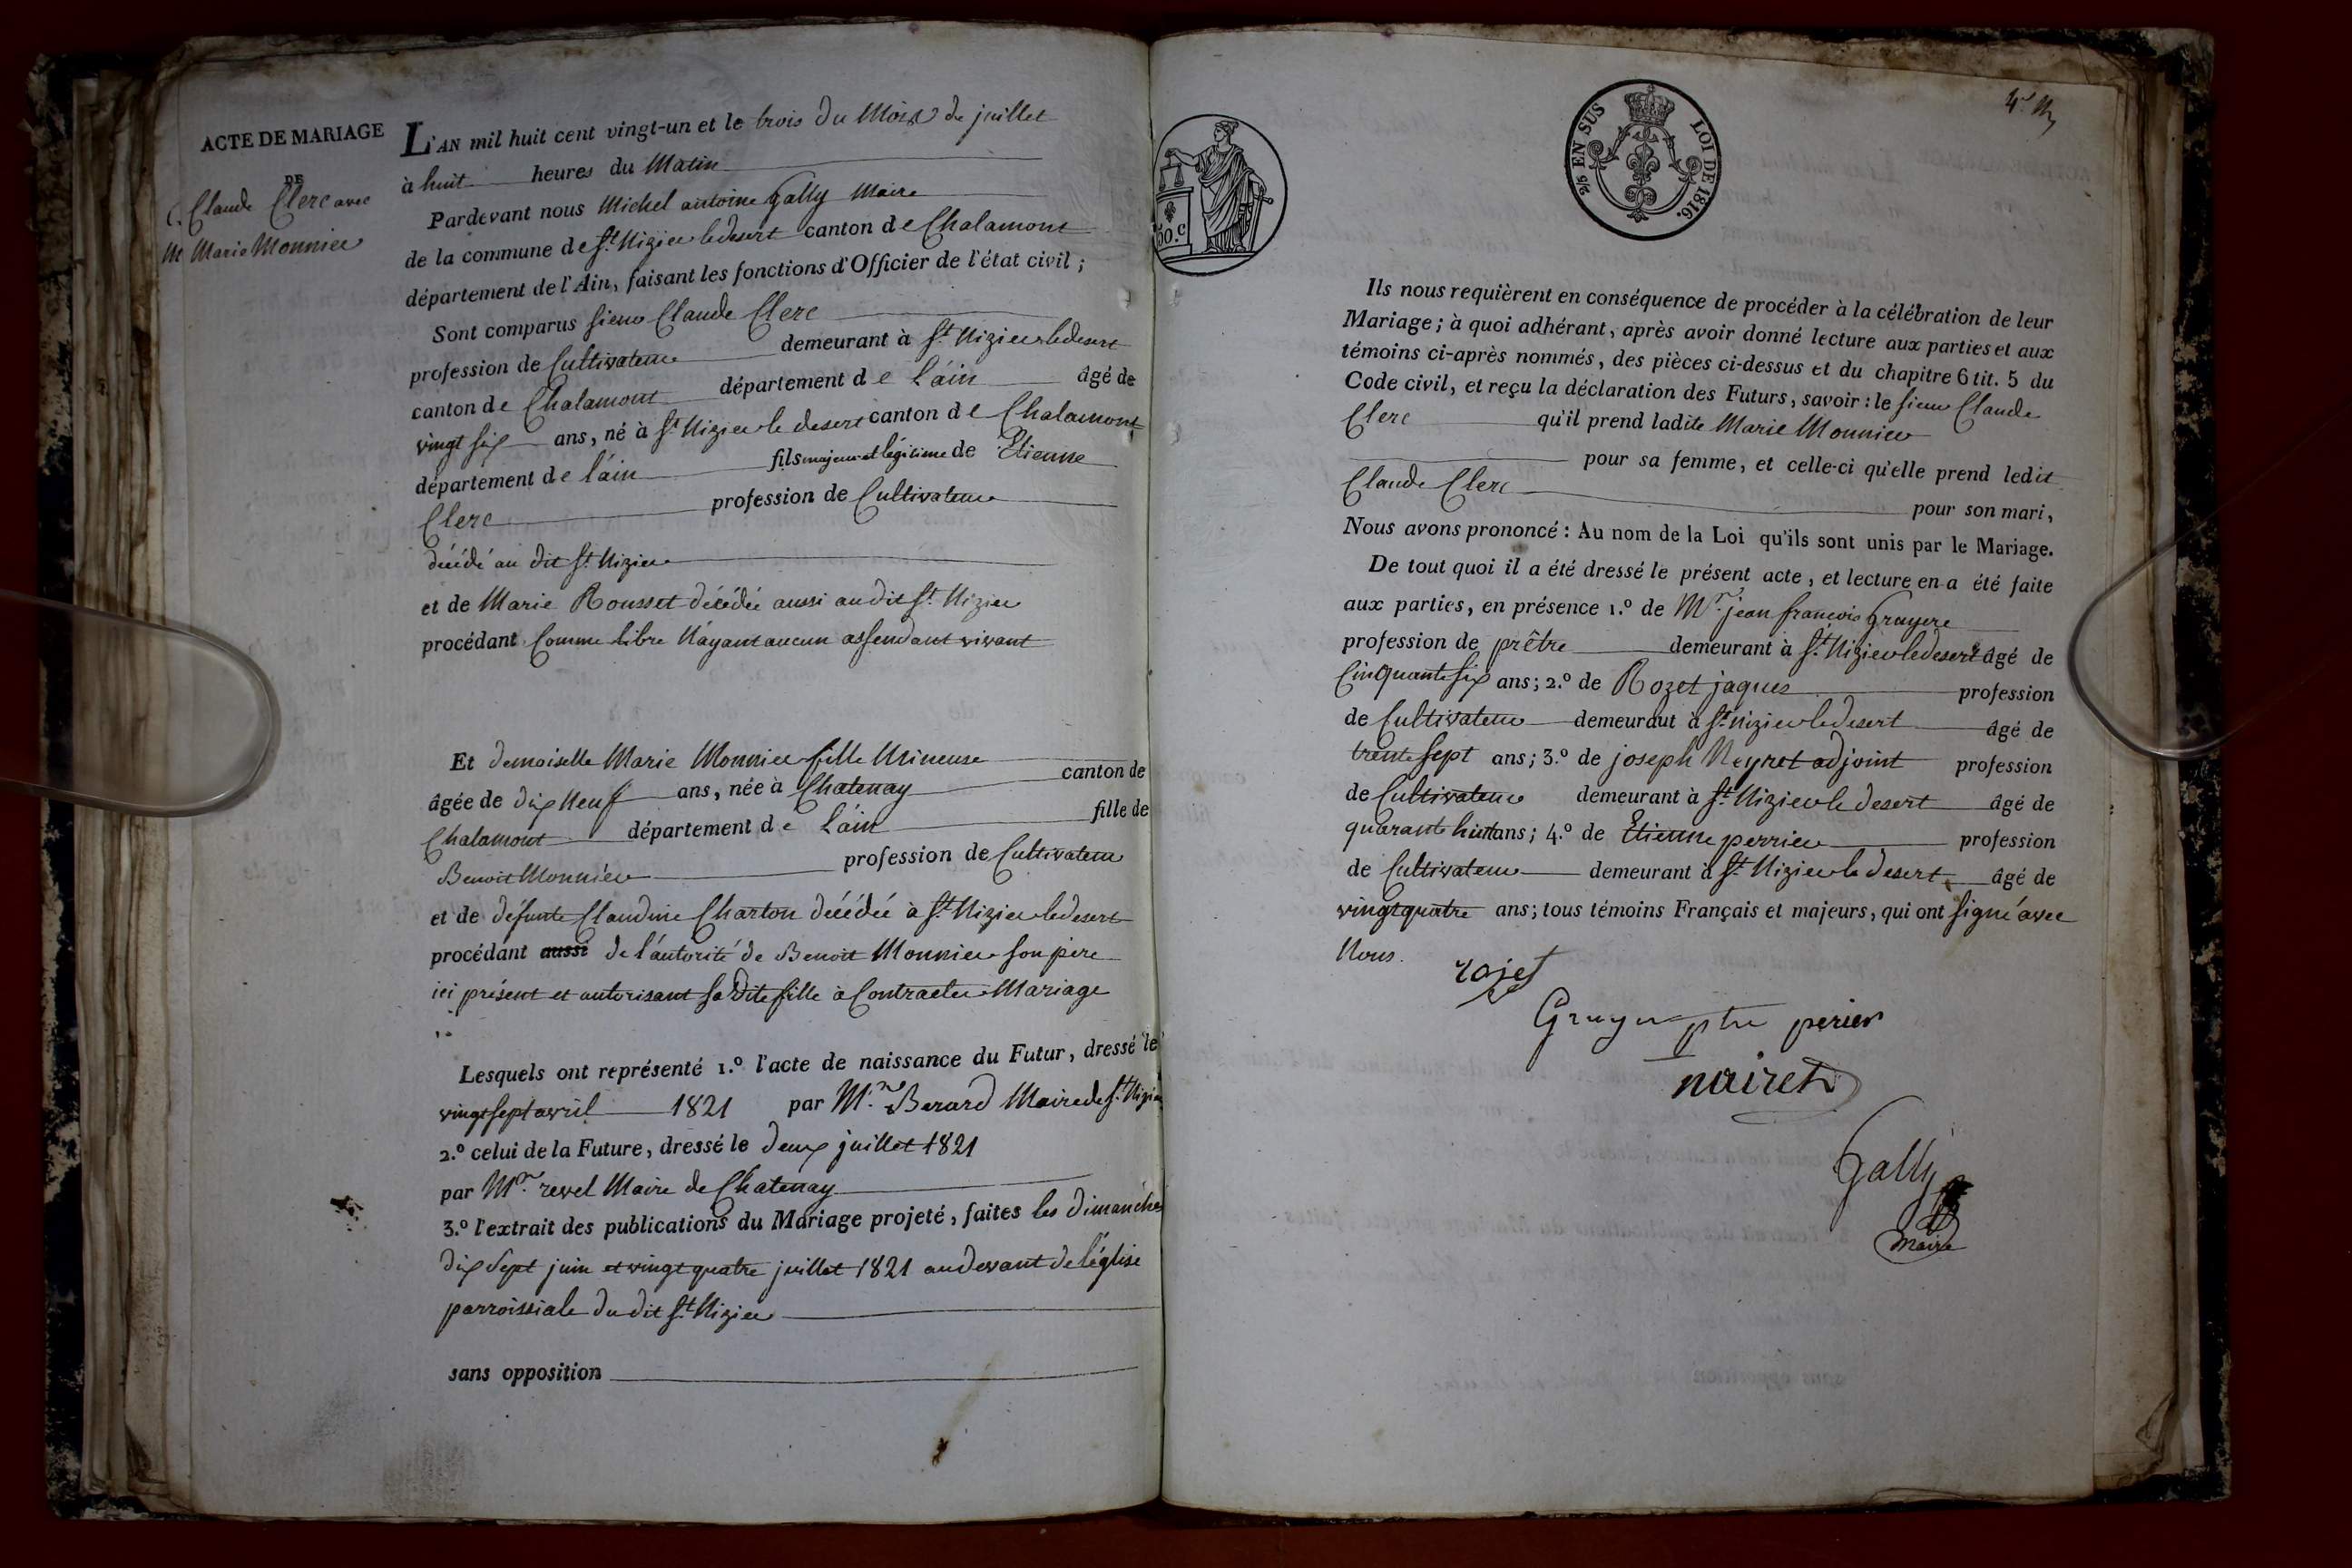 ACTE DE MARIAGE
DE
C. Claude Clerc avec
M Marie Monnier
L'AN mil huit cent vingt-un et le trois du Mois de juillet
à huit heures du Matin
Pardevant nous Michel antoine Gally Maire
de la commune de St. Nizier le desert canton de Chalamont
département de l'Ain, faisant les fonctions d'Officier de l'état civil ;
Sont comparus sieur Claude Clerc
profession de Cultivateur demeurant à St. Nizier le desert
canton de Chalamont département de L'ain âgé de
vingt six ans, né à St. Nizier le desert canton de Chalamont
département de L'ain fils majeur et légitime de Etienne
Clerc profession de Cultivateur
décédé au dit St. Nizier
et de Marie Rousset décédée aussi au dit St. Nizier
procédant Comme libre N'ayant aucun assendant vivant
Et demoiselle Marie Monnier fille Mineuse
âgée de dix Neuf ans, née à Chatenay canton de
Chalamont département de L'ain fille de
Benoit Monnier profession de Cultivateur
et de défunte Claudine Charton décédée à St. Nizier le desert
procédant aussi de l'autorité de Benoit Monnier son père
ici présent et autorisant sa dite fille à Contracter Mariage
Lesquels ont représenté 1.º l'acte de naissance du Futur, dressé le
vingt sept avril 1821 par Mr. Berard Maire de St. Nizier
2.º celui de la Future, dressé le deux juillet 1821
par Mr. revel Maire de Chatenay
3.º l'extrait des publications du Mariage projeté, faites les dimanches
dix sept juin et vingt quatre juillet 1821 au devant de l'église
parroissiale du dit St. Nizier
sans opposition
50.c
2/5 EN SUS LOI DE 1816.
Ils nous requièrent en conséquence de procéder à la célébration de leur
Mariage ; à quoi adhérant, après avoir donné lecture aux parties et aux
témoins ci-après nommés, des pièces ci-dessus et du chapitre 6 tit. 5 du
Code civil, et reçu la déclaration des Futurs, savoir : le sieur Claude
Clerc qu'il prend ladite Marie Monnier
pour sa femme, et celle-ci qu'elle prend ledit
Claude Clerc pour son mari,
Nous avons prononcé : Au nom de la Loi qu'ils sont unis par le Mariage.
De tout quoi il a été dressé le présent acte, et lecture en a été faite
aux parties, en présence 1.º de Mr. jean francois Gruyere
profession de prêtre demeurant à St. Nizier le desert âgé de
Cinquante six ans ; 2.º de Rozet jaques profession
de Cultivateur demeurant à St. nizier le desert âgé de
trente sept ans ; 3.º de joseph Neyret adjoint profession
de Cultivateur demeurant à St. Nizier le desert âgé de
quarante huit ans ; 4.º de Etienne perrier profession
de Cultivateur demeurant à St. Nizier le desert âgé de
vingt quatre ans ; tous témoins Français et majeurs, qui ont signé avec
Nous.
rojet
Gruyer ptre perier
nairet
Gally
Maire